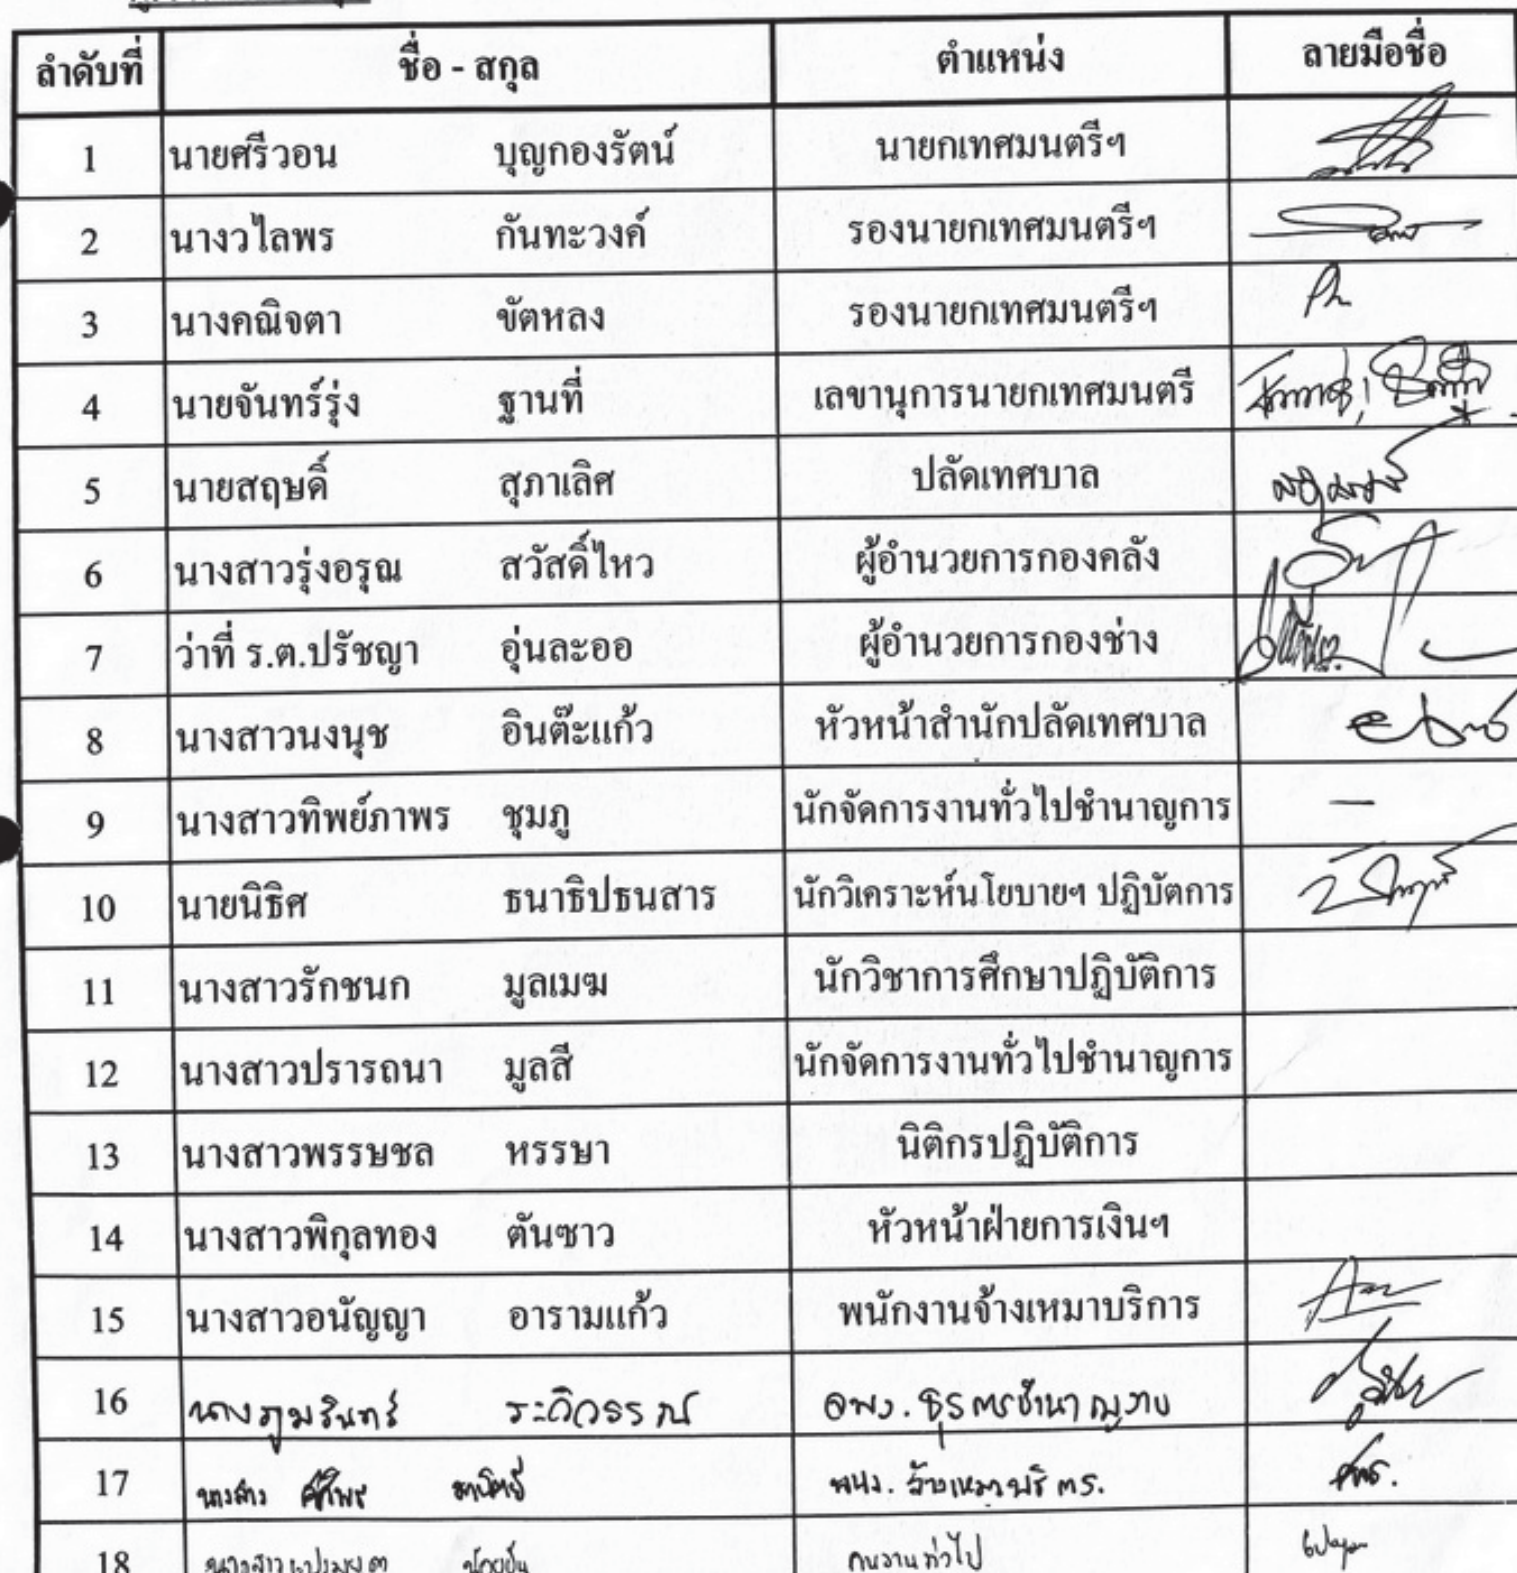 ลำดับที่ ชื่อ - สกุล ตำแหน่ง ลายมือชื่อ
1 นายศรีวอน บุญกองรัตน์ นายกเทศมนตรีฯ
2 นางวไลพร กันทะวงค์ รองนายกเทศมนตรีฯ
3 นางคณิจตา ขัตหลง รองนายกเทศมนตรีฯ
4 นายจันทร์รุ่ง ฐานที่ เลขานุการนายกเทศมนตรี
5 นายสฤษดิ์ สุภาเลิศ ปลัดเทศบาล
6 นางสาวรุ่งอรุณ สวัสดิ์ไหว ผู้อำนวยการกองคลัง
7 ว่าที่ ร.ต.ปรัชญา อุ่นละออ ผู้อำนวยการกองช่าง
8 นางสาวนงนุช อินต๊ะแก้ว หัวหน้าสำนักปลัดเทศบาล
9 นางสาวทิพย์ภาพร ชุมภู นักจัดการงานทั่วไปชำนาญการ —
10 นายนิธิศ ธนาธิปธนสาร นักวิเคราะห์นโยบายฯ ปฏิบัตการ
11 นางสาวรักชนก มูลเมฆ นักวิชาการศึกษาปฏิบัติการ
12 นางสาวปรารถนา มูลสี นักจัดการงานทั่วไปชำนาญการ
13 นางสาวพรรษชล หรรษา นิติกรปฏิบัติการ
14 นางสาวพิกุลทอง ตันซาว หัวหน้าฝ่ายการเงินฯ
15 นางสาวอนัญญา อารามแก้ว พนักงานจ้างเหมาบริการ
16 นางภูมรินทร์ ระวิวรรณ์ จพง. ธุรการชำนาญงาน
17 นางสาว พนง. จ้างเหมาบริการ.
18 นางสาว คนงานทั่วไป